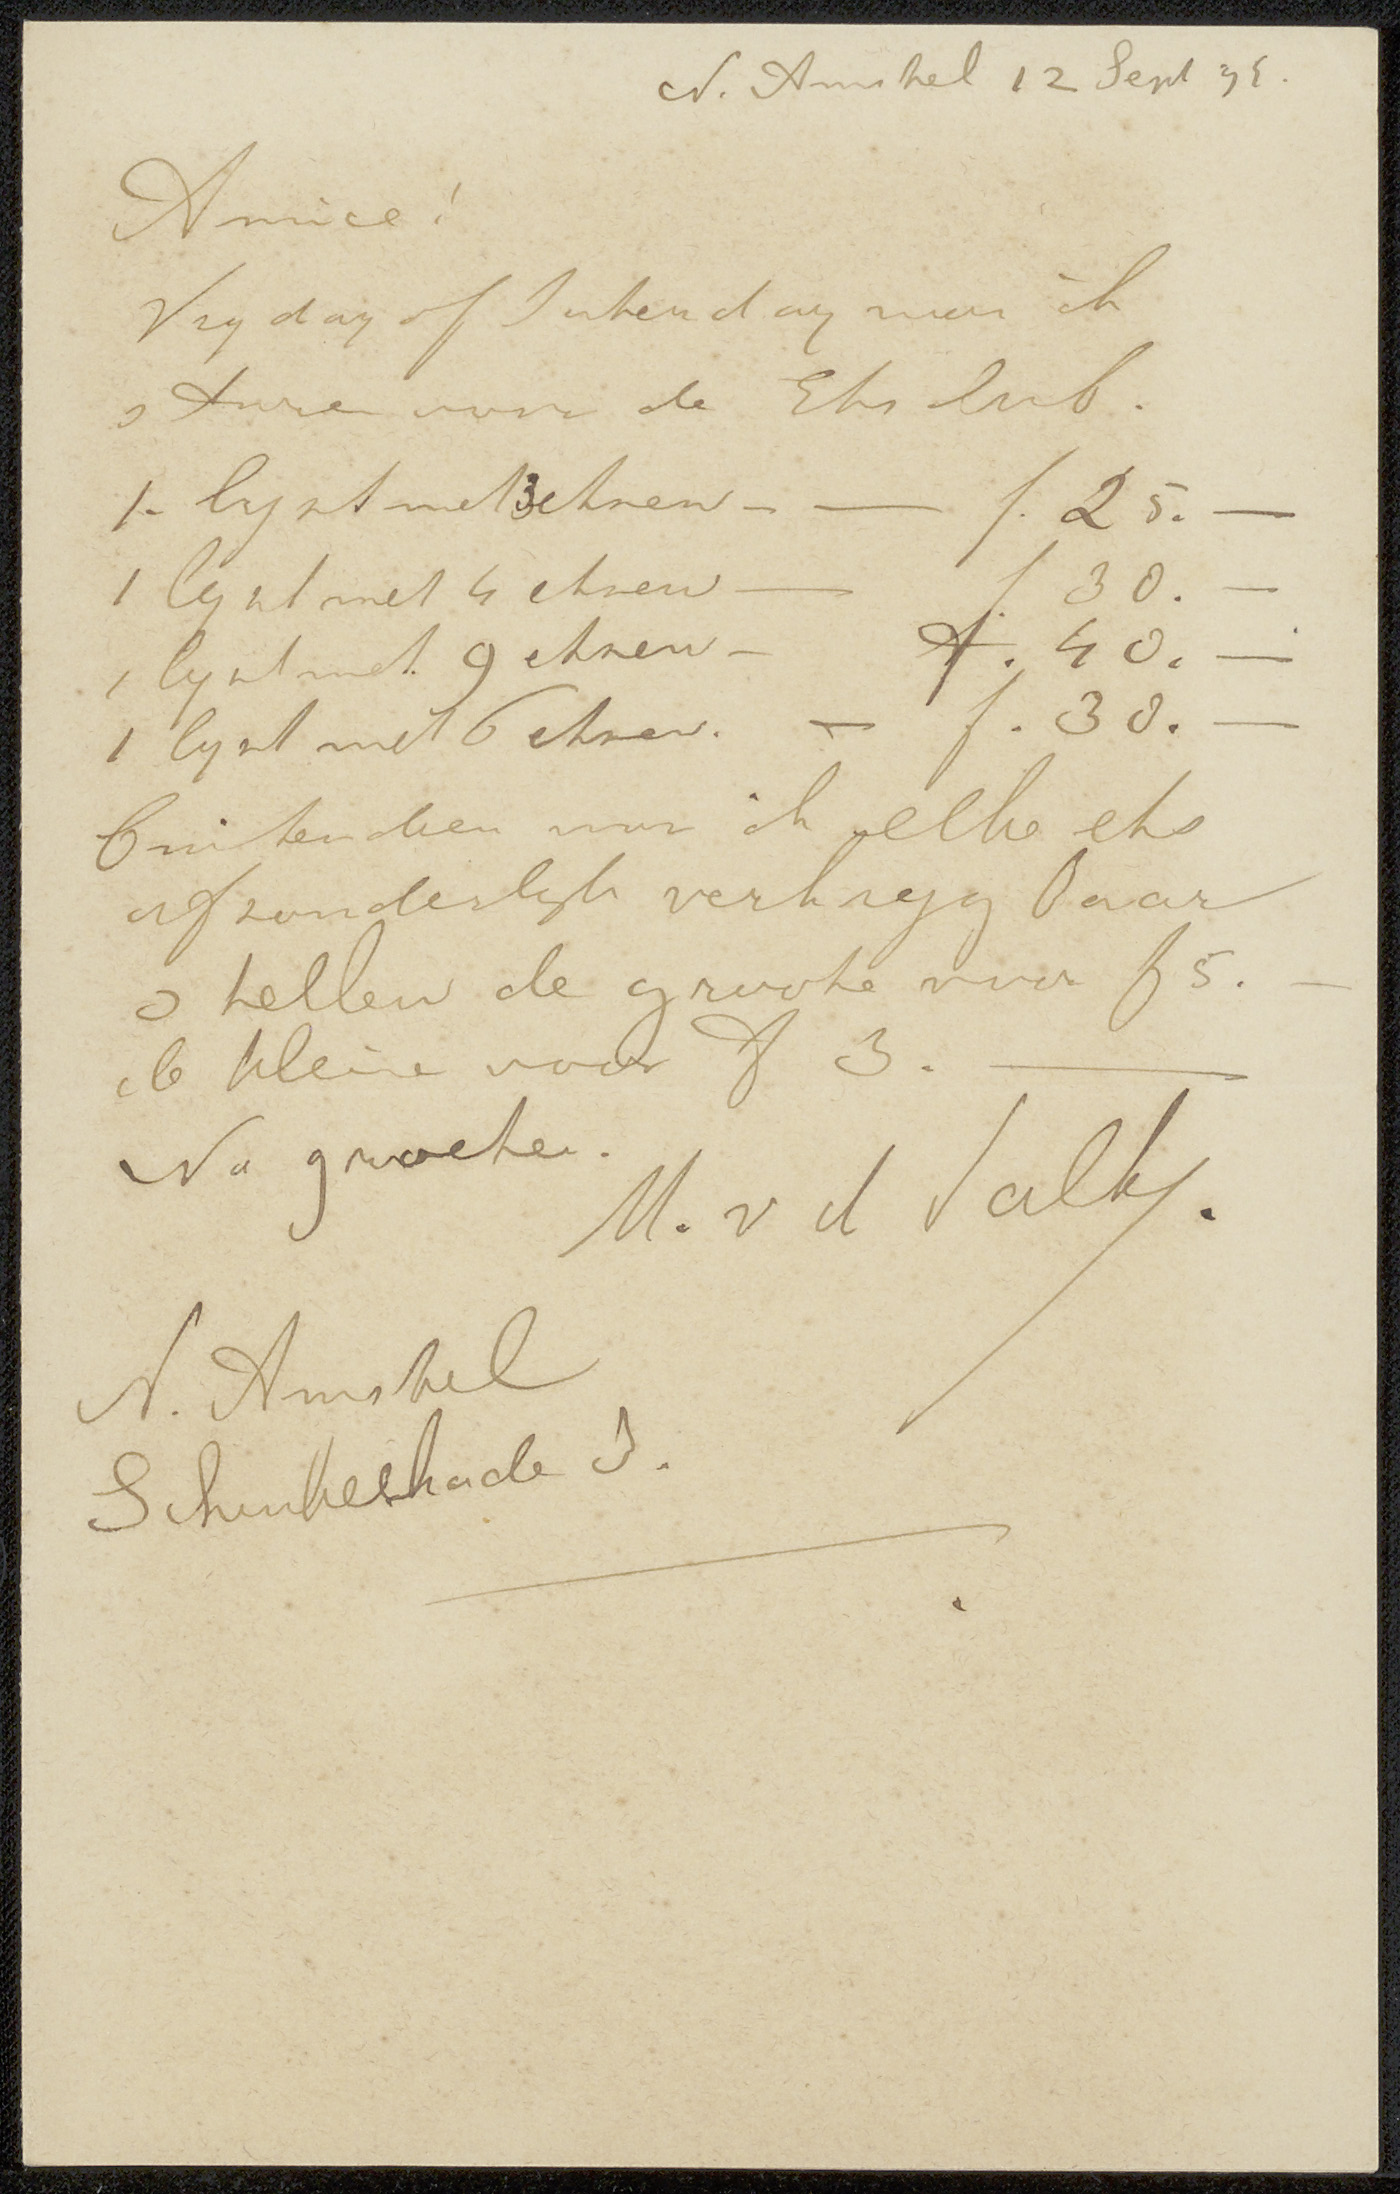 N. Amstel 12 Sept 95.
Amice!
Vrydag of Zaterdag wou ik
sturen voor de Etsclub.
1. lyst met 3 etsen - — f. 25. —
1 lyst met 4 etsen — f 30. —
1 lyst met 9 etsen - f. 40. —
1 lyst met 6 etsen. - f. 30. —
buitendien wou ik elke ets
afzonderlyk verkrygbaar
stellen de groote voor f 5. —
de kleine voor f 3. —
Na groeten.
M. v d Valk.
N. Amstel
Schinkelkade 3.